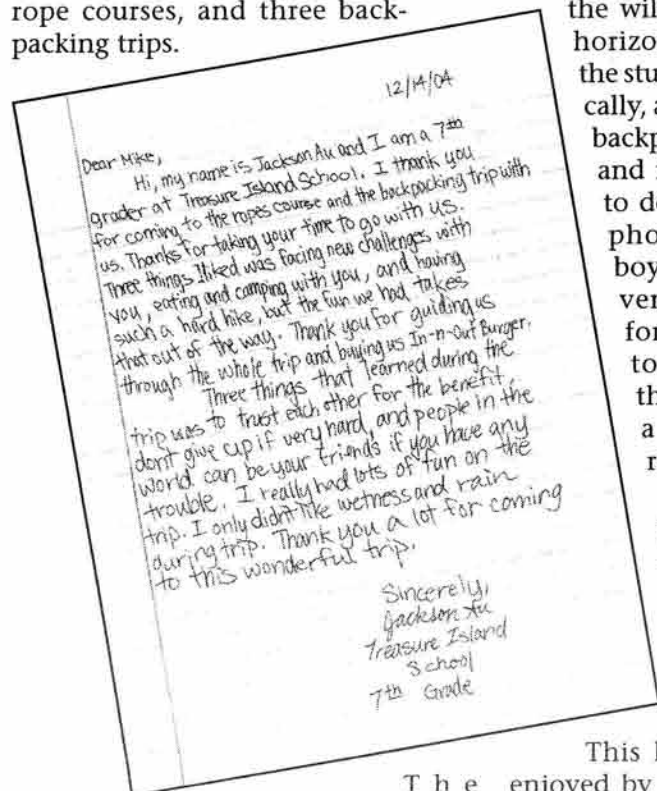 rope courses, and three back-
packing trips.
12/14/04
Dear Mike,
Hi, my name is Jackson Au and I am a 7th
grader at Treasure Island School. I thank you
for coming to the ropes course and the backpacking trip with
us. Thanks for taking your time to go with us.
Three things I liked was facing new challenges with
you, eating and camping with you, and having
such a hard hike, but the fun we had takes
that out of the way. Thank you for guiding us
through the whole trip and buying us In-n-Out Burger.
Three things that learned during the
trip was to trust each other for the benefit,
dont give up if very hard, and people in the
world can be your friends if you have any
trouble. I really had lots of fun on the
trip. I only didn't like wetness and rain
during trip. Thank you a lot for coming
to this wonderful trip.
Sincerely,
Jackson Au
Treasure Island
School
7th Grade
the wil
horizo
the stu
cally, a
backp
and
to de
pho
boy
ver
for
to
th
a
r
This
The enjoyed by